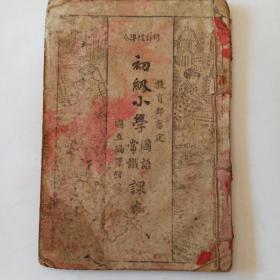 教育部審定
初級小學
國語
常識
課本
國立編譯館